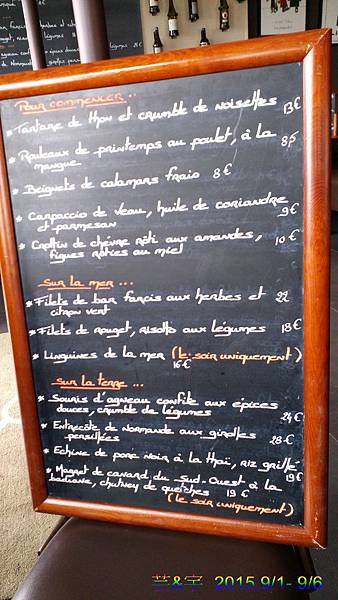 Pour commencer...
* Tartare de thon et crumble de noisettes 13€
* Rouleaux de printemps au poulet, à la
mangue
* Beignets de calamars frais 8€
* Carpaccio de veau, huile de coriandre
et parmesan 9€
* Crottin de chèvre rôti aux amandes, 10€
figues rôties au miel
Sur la mer...
* Filets de bar farcis aux herbes et 22
citron vert
* Filets de rouget, risotto aux légumes 18€
* Linguines de la mer (le soir uniquement)
16€
Sur la terre...
* Souris d'agneau confite aux épices
douces, crumble de légumes 24€
* Entrecôte de Normande aux girolles
persillées 28€
* Echine de porc noir à la thaï, riz grillé
19€
* Magret de canard du Sud-Ouest à la
badiane, chutney de quetshes 19€
(le soir uniquement)
2015.9/1- 9/6